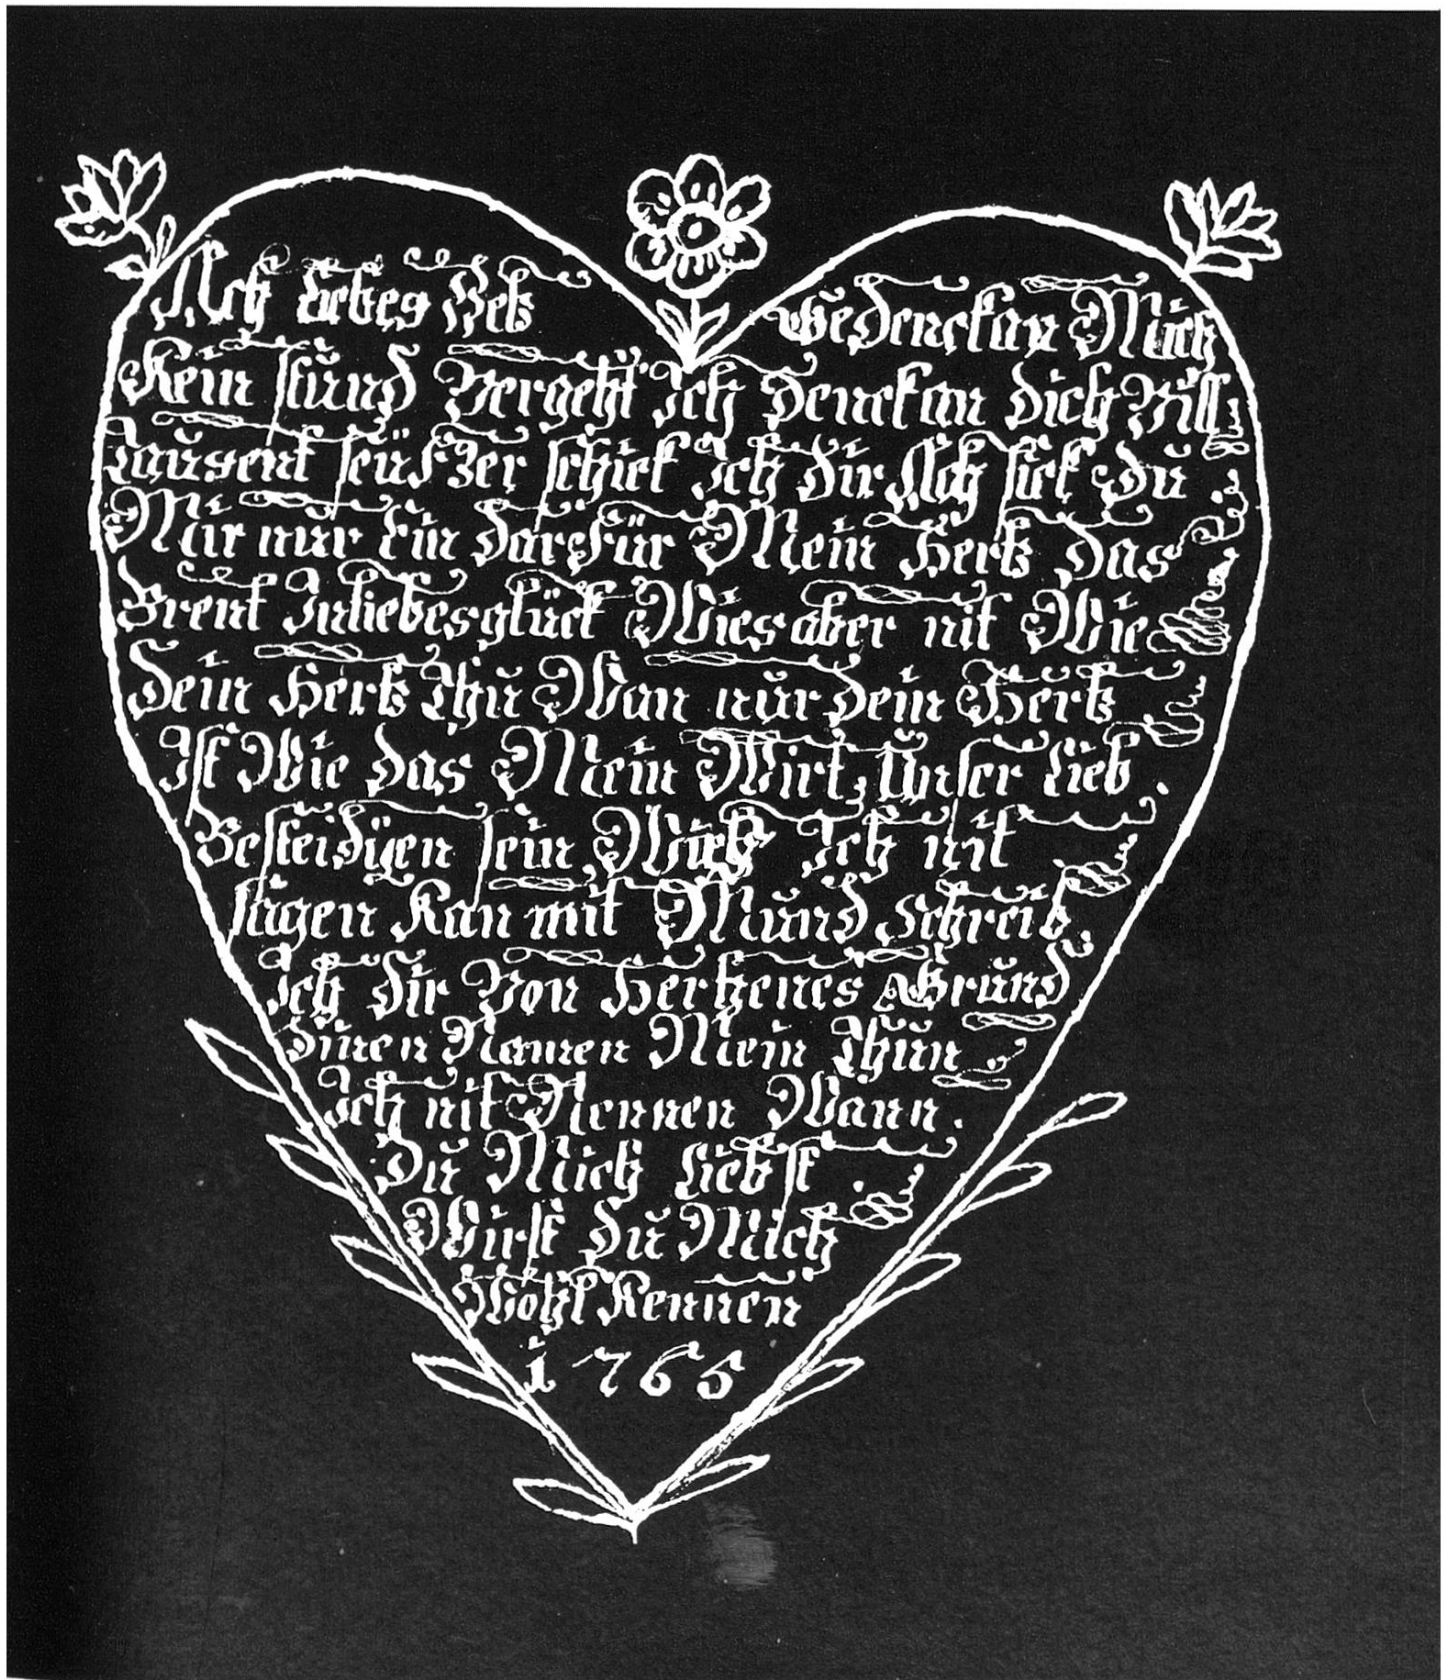 Ach liebes Hetz Gedenck an Mich
Kein stund Vergeht Ich Denck an Dich Vill
Tausent seüfzer schick Ich Dir Ach sick Du
Mir nur Ein Darfür Mein Hertz Das
Brent In liebesglück Wies aber nit Wie
Dein Hertz Thu Wan nur Dein Hertz
Ist Wie das Mein Wirt Unser lieb
Besteidigen sein Ich nit
sagen Kan mit Mund schreib
Ich Dir Von Hertzenes Grund
Namen Mein Thun
Ich nit Nennen Wann.
Du Mich liebst
Wirst Du Mich
Wohl Kennen
1765